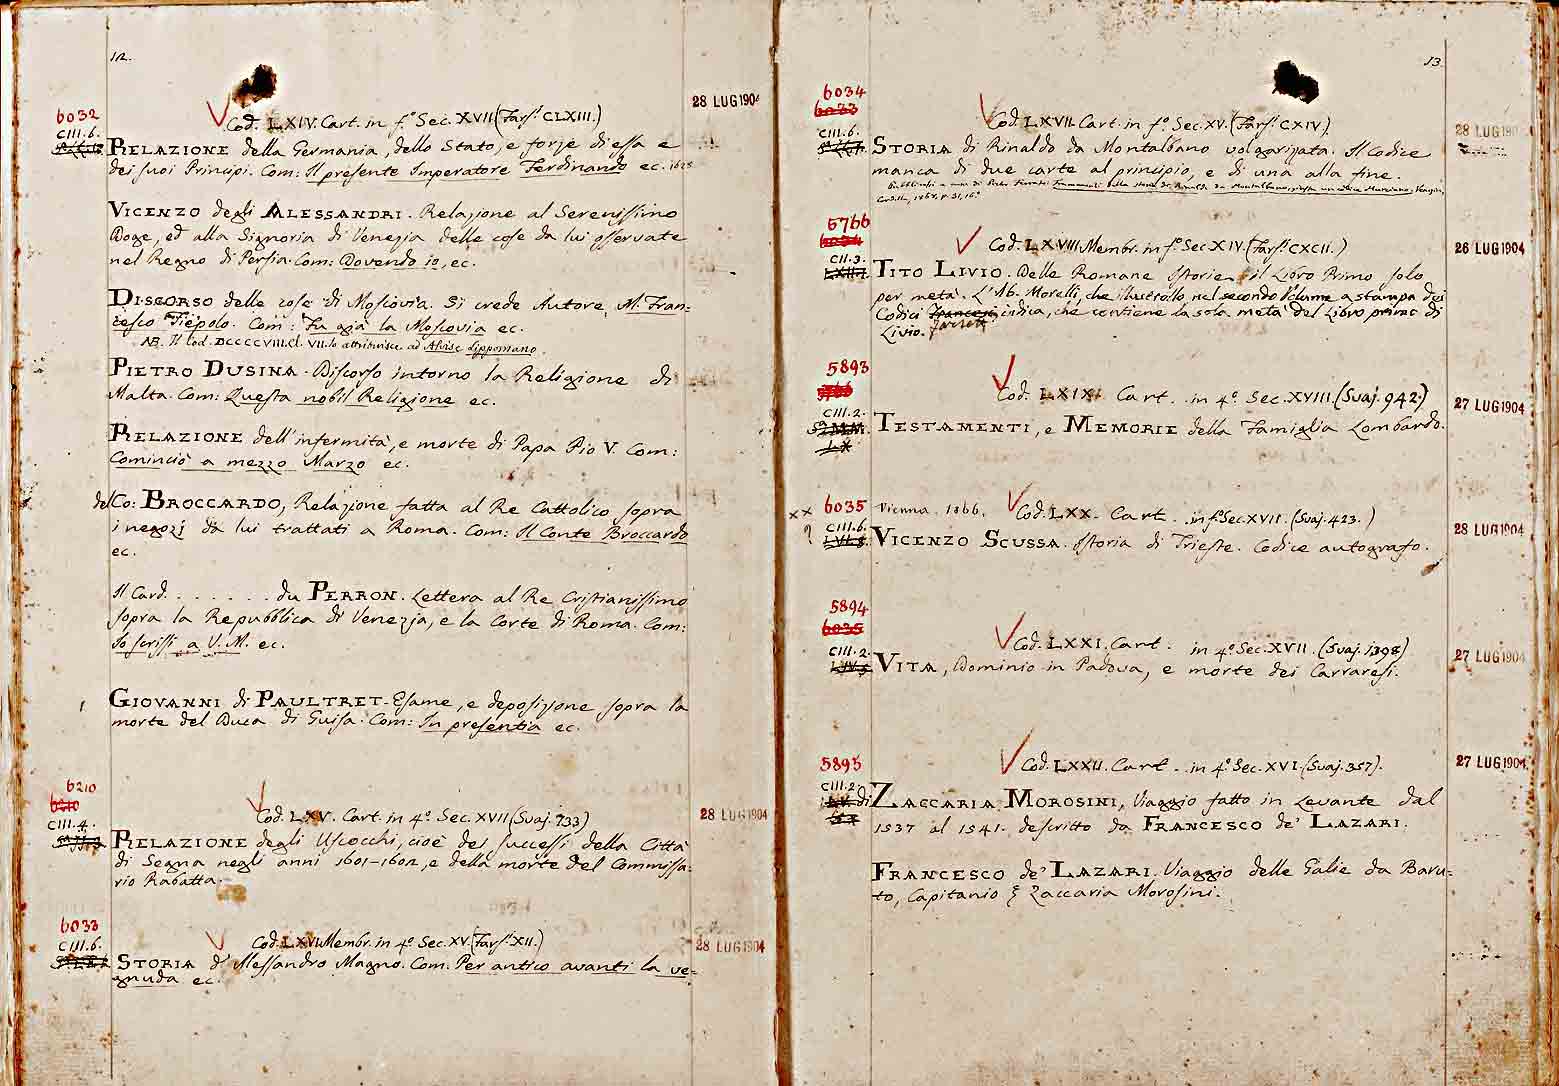 12.
28 LUG 1904
6032
CIII.6.
Cod. LXIV. Cart. in fº. Sec. XVII (Fars: CLXIII.)
RELAZIONE della Germania, dello Stato, e forze di essa e
dei suoi Principi. Com: Il presente Imperatore Ferdinando ec. 1628
VICENZO degli ALESSANDRI. Relazione al Serenissimo
Doge, ed alla Signoria di Venezia delle cose da lui osservate
nel Regno di Persia. Com: Dovendo io, ec.
DISCORSO delle cose di Moscovia. Si crede Autore M. Fran=
cesco Tiepolo. Com: Fu già la Moscovia ec.
NB. Il Cod. DCCCCVIII. Cl. VII. lo attribuisce ad Alvise Lippomano.
PIETRO DUSINA. Discorso intorno la Religione di
Malta. Com: Questa nobil Religione ec.
RELAZIONE dell'infermità, e morte di Papa Pio V. Com:
Cominciò a mezzo Marzo ec.
del Co: BROCCARDO, Relazione fatta al Re Cattolico sopra
i negozj da lui trattati a Roma. Com: Il Conte Broccardo
ec.
Il Card. . . . . . . . du PERRON. Lettera al Re Cristianissimo
sopra la Repubblica di Venezia, e la Corte di Roma. Com:
Io scrissi a V. M. ec.
GIOVANNI di PAULTRET. Esame, e deposizione sopra la
morte del Duca di Guisa. Com: In presentia ec.
6210
6210
CIII.4.
Cod. LXV. Cart. in 4º. Sec. XVII (Svaj. 733)
28 LUG 1904
RELAZIONE degli Uscocchi, cioè dei successi della Città
di Segna negli anni 1601-1602, e della morte del Commissa=
rio Rabatta.
6033
CIII.6.
Cod. LXVI. Membr. in 4º. Sec. XV. (Fars: XII.)
28 LUG 1904
STORIA d' Alessandro Magno. Com. Per antico avanti la ve=
gnuda ec.
13.
6034
6033
CIII.6.
Cod. LXVII. Cart. in fº. Sec. XV. (Fars: CXIV)
28 LUG 1904
STORIA di Rinaldo da Montalbano volgarizzata. Il Codice
manca di due carte al principio, e di una alla fine.
5766
6034
CII.3.
Cod. LXVIII. Membr. in fº. Sec. XIV. (Fars: CXCII.)
26 LUG 1904
TITO LIVIO. Delle Romane Istorie il Libro Primo solo
per metà. L'Ab. Morelli, che illustrollo nel secondo Volume a stampa dei
Codici Farsetti, indica, che contiene la sola metà del Libro primo di
Livio.
5893
5766
CIII.2.
Cod. LXIX. Cart. in 4º. Sec. XVIII. (Svaj. 942.)
27 LUG 1904
TESTAMENTI, e MEMORIE della Famiglia Lombardo.
xx 6035
? CIII.6.
Vienna. 1866.
Cod. LXX. Cart. in fº. Sec. XVII. (Svaj. 423.)
28 LUG 1904
VICENZO SCUSSA. Istoria di Trieste. Codice autografo.
5894
6035
CIII.2.
Cod. LXXI. Cart. in 4º. Sec. XVII. (Svaj. 1398)
27 LUG 1904
VITA, Dominio in Padova, e morte dei Carraresi.
5895
CIII.2.
Cod. LXXII. Cart. in 4º. Sec. XVI. (Svaj. 357).
27 LUG 1904
di ZACCARIA MOROSINI, Viaggio fatto in Levante dal
1537 al 1541. descritto da FRANCESCO de' LAZARI.
FRANCESCO de' LAZARI. Viaggio delle Galie da Baru=
to, Capitanio ξ Zaccaria Morosini.